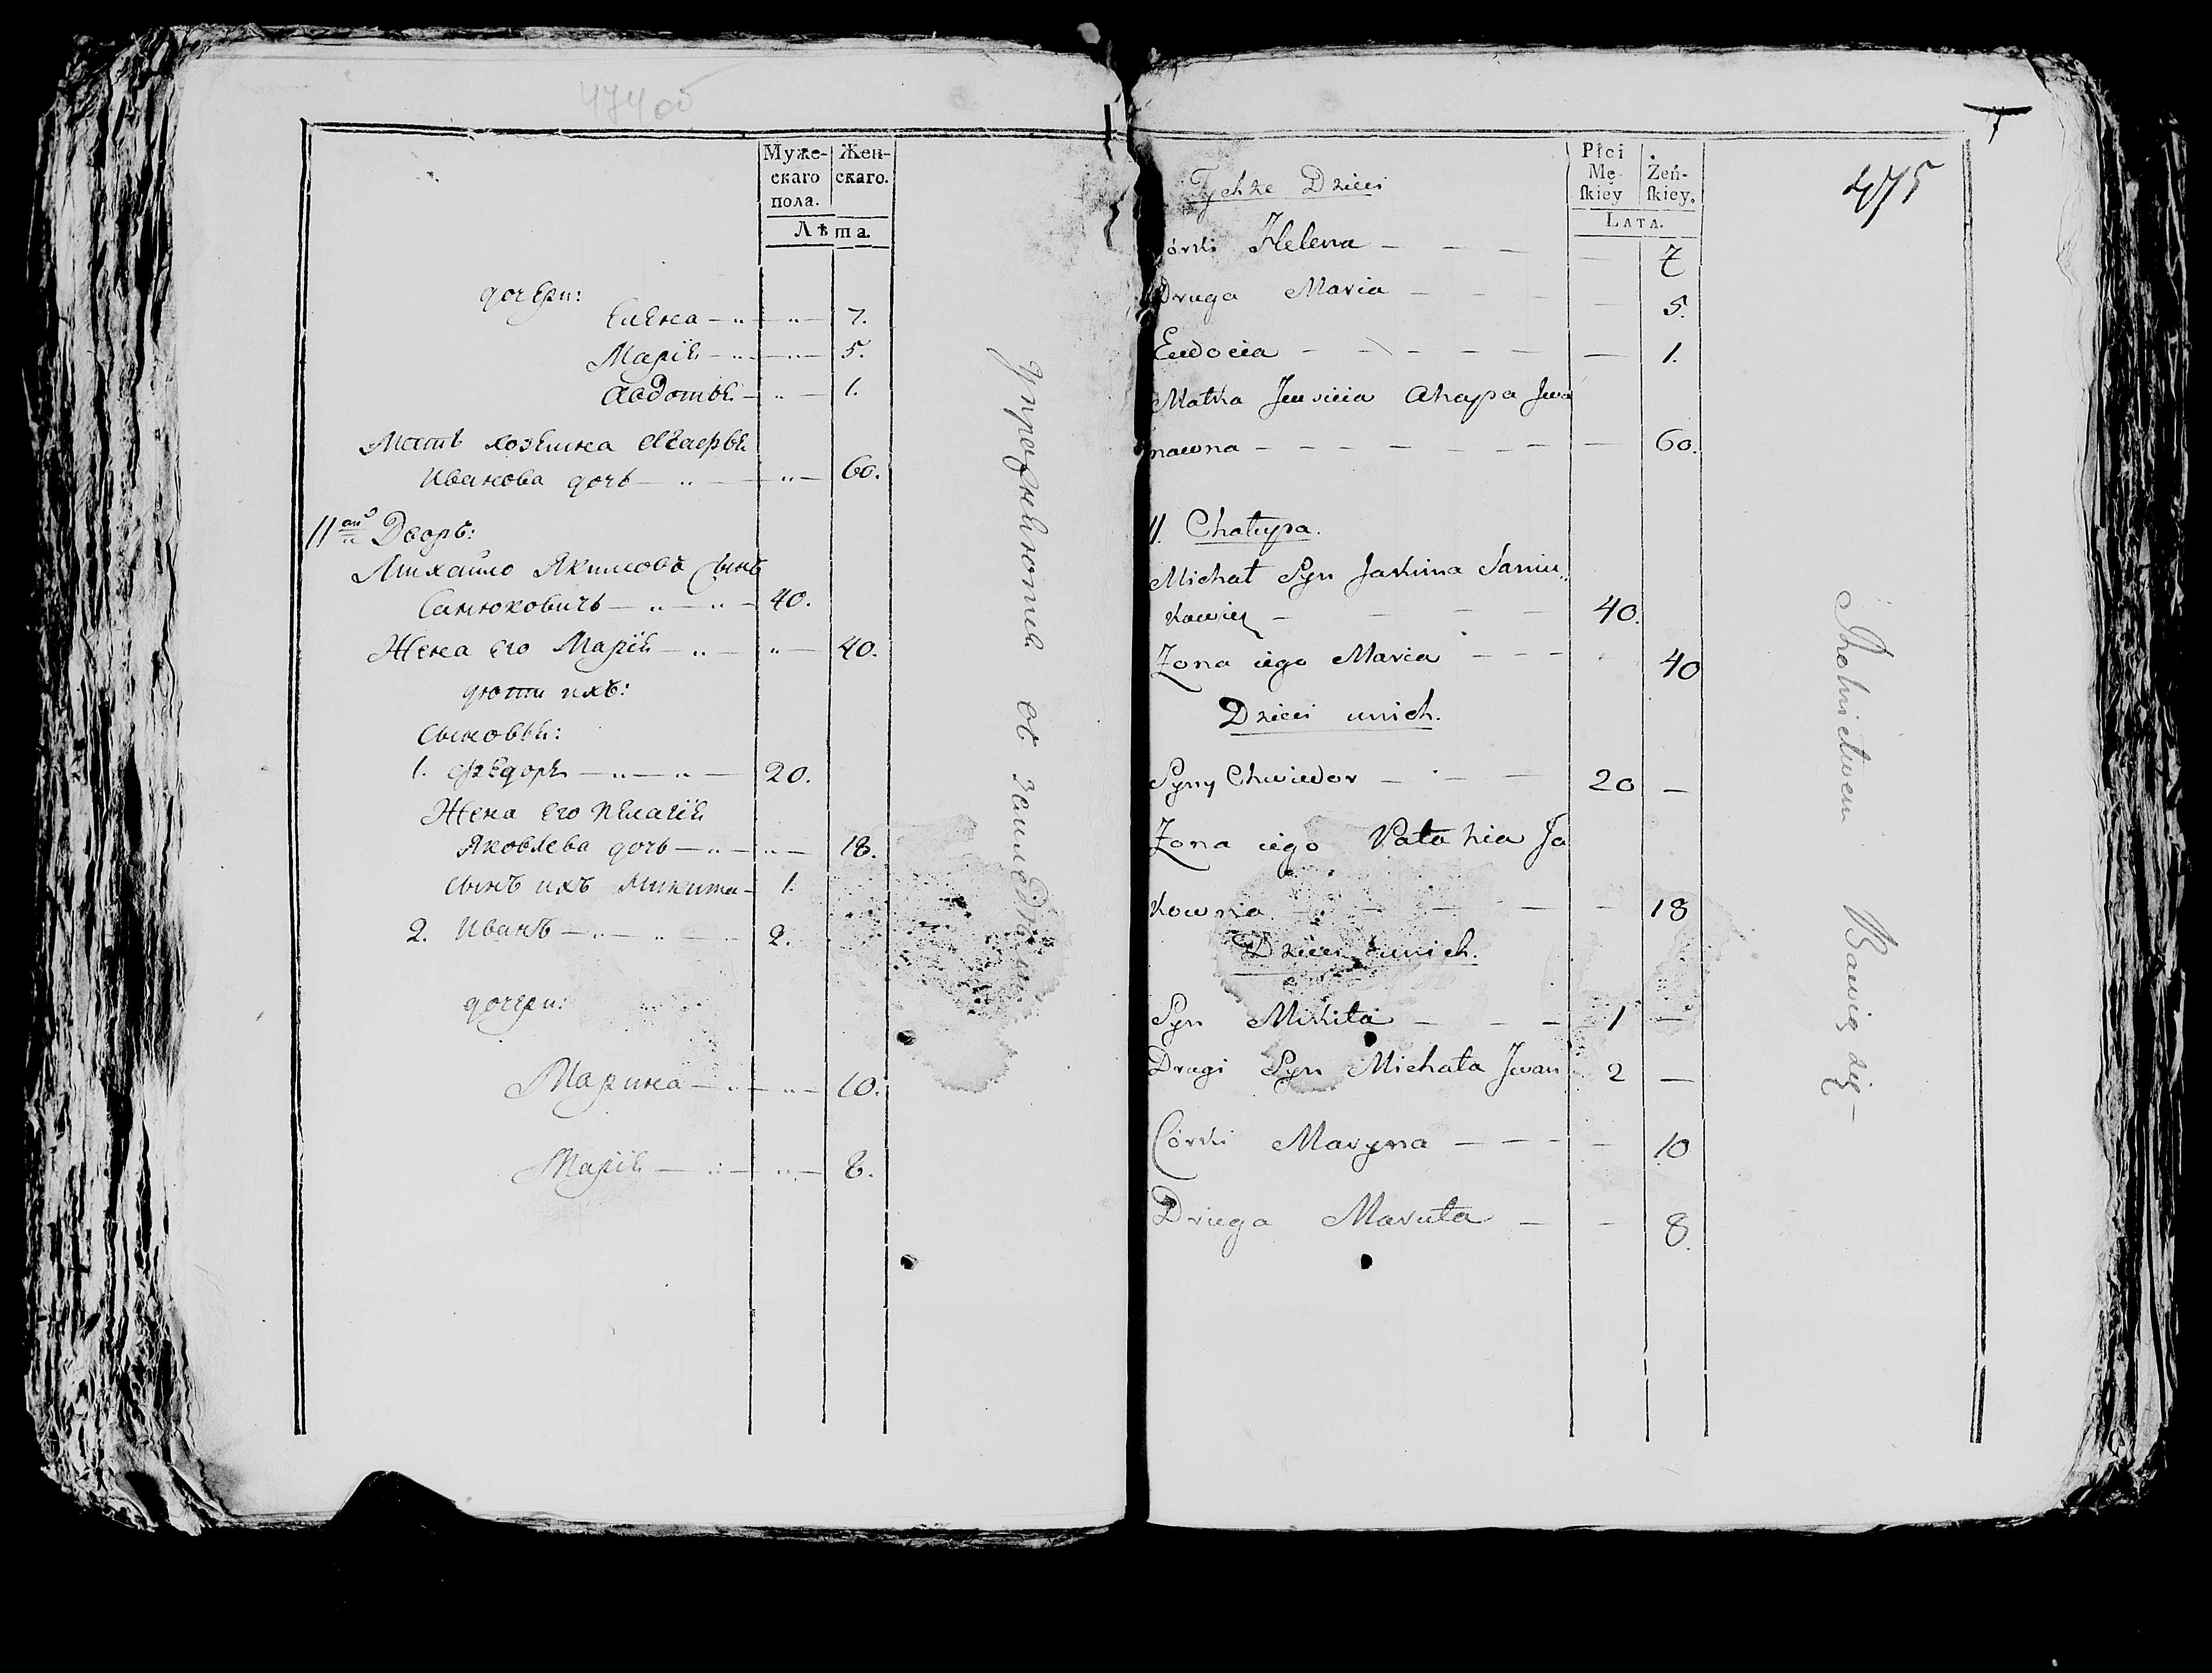 474 об
Муже-
скаго
пола.
Жен-
скаго.
Лѣта.
дочери:
Елена — 7.
Марія — 5.
Авдотья — 1.
Мать хозяина Агафья
Иванова дочь — 60.
11ый Дворъ:
Михайло Якимовъ сынъ
Санюковичъ — 40.
Жена его Марія — 40.
дѣти ихъ:
сыновья:
1. Федоръ — 20.
Жена его Пелагія
Яковлева дочь — 18.
сынъ ихъ Микита — 1.
2. Иванъ — 2.
дочери:
Марина — 10.
Марія — 8.
упражняются въ земледѣліи
475
Płci
Mę
ſkiey
Żeń-
ſkiey.
LATA.
Tychże Dzieci
órki Helena — 7
Druga Maria — 5.
Eudocia — 1.
Matka Ahapa Iwa
nowna — 60.
11. Chałupa.
Michał Syn Jakima Saniu„
kowicz — 40.
Zona iego Maria — 40
Dzieci unich.
Syny Chwiedor — 20 —
Zona iego Pałahia Ja
kowna — 18
Dzieci unich.
Syn Mikita — 1 —
Drugi Syn Michała Jwan 2 —
Córki Maryna — 10
Druga Maruta — 8.
Rolnictwem Bawią się —